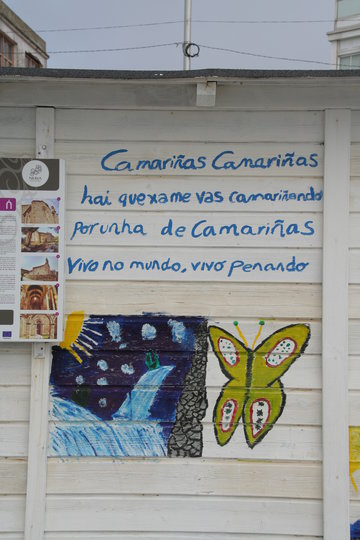 Camariñas Camariñas
hai quexame vas camariñando
por unha de Camariñas
vivo no mundo, vivo penando